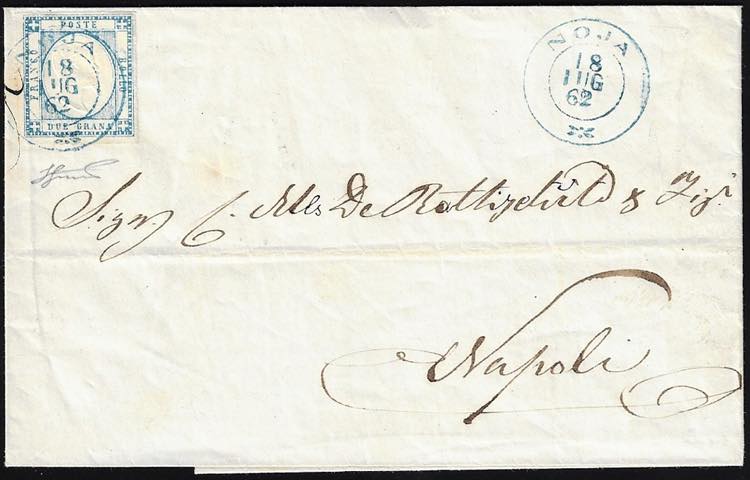 POSTE
FRANCO
BOLLO
DUE GRANA
NOJA
18
LUG
62
NOJA
18
LUG
62
Sign. C. De Rothschild & Figi
Napoli